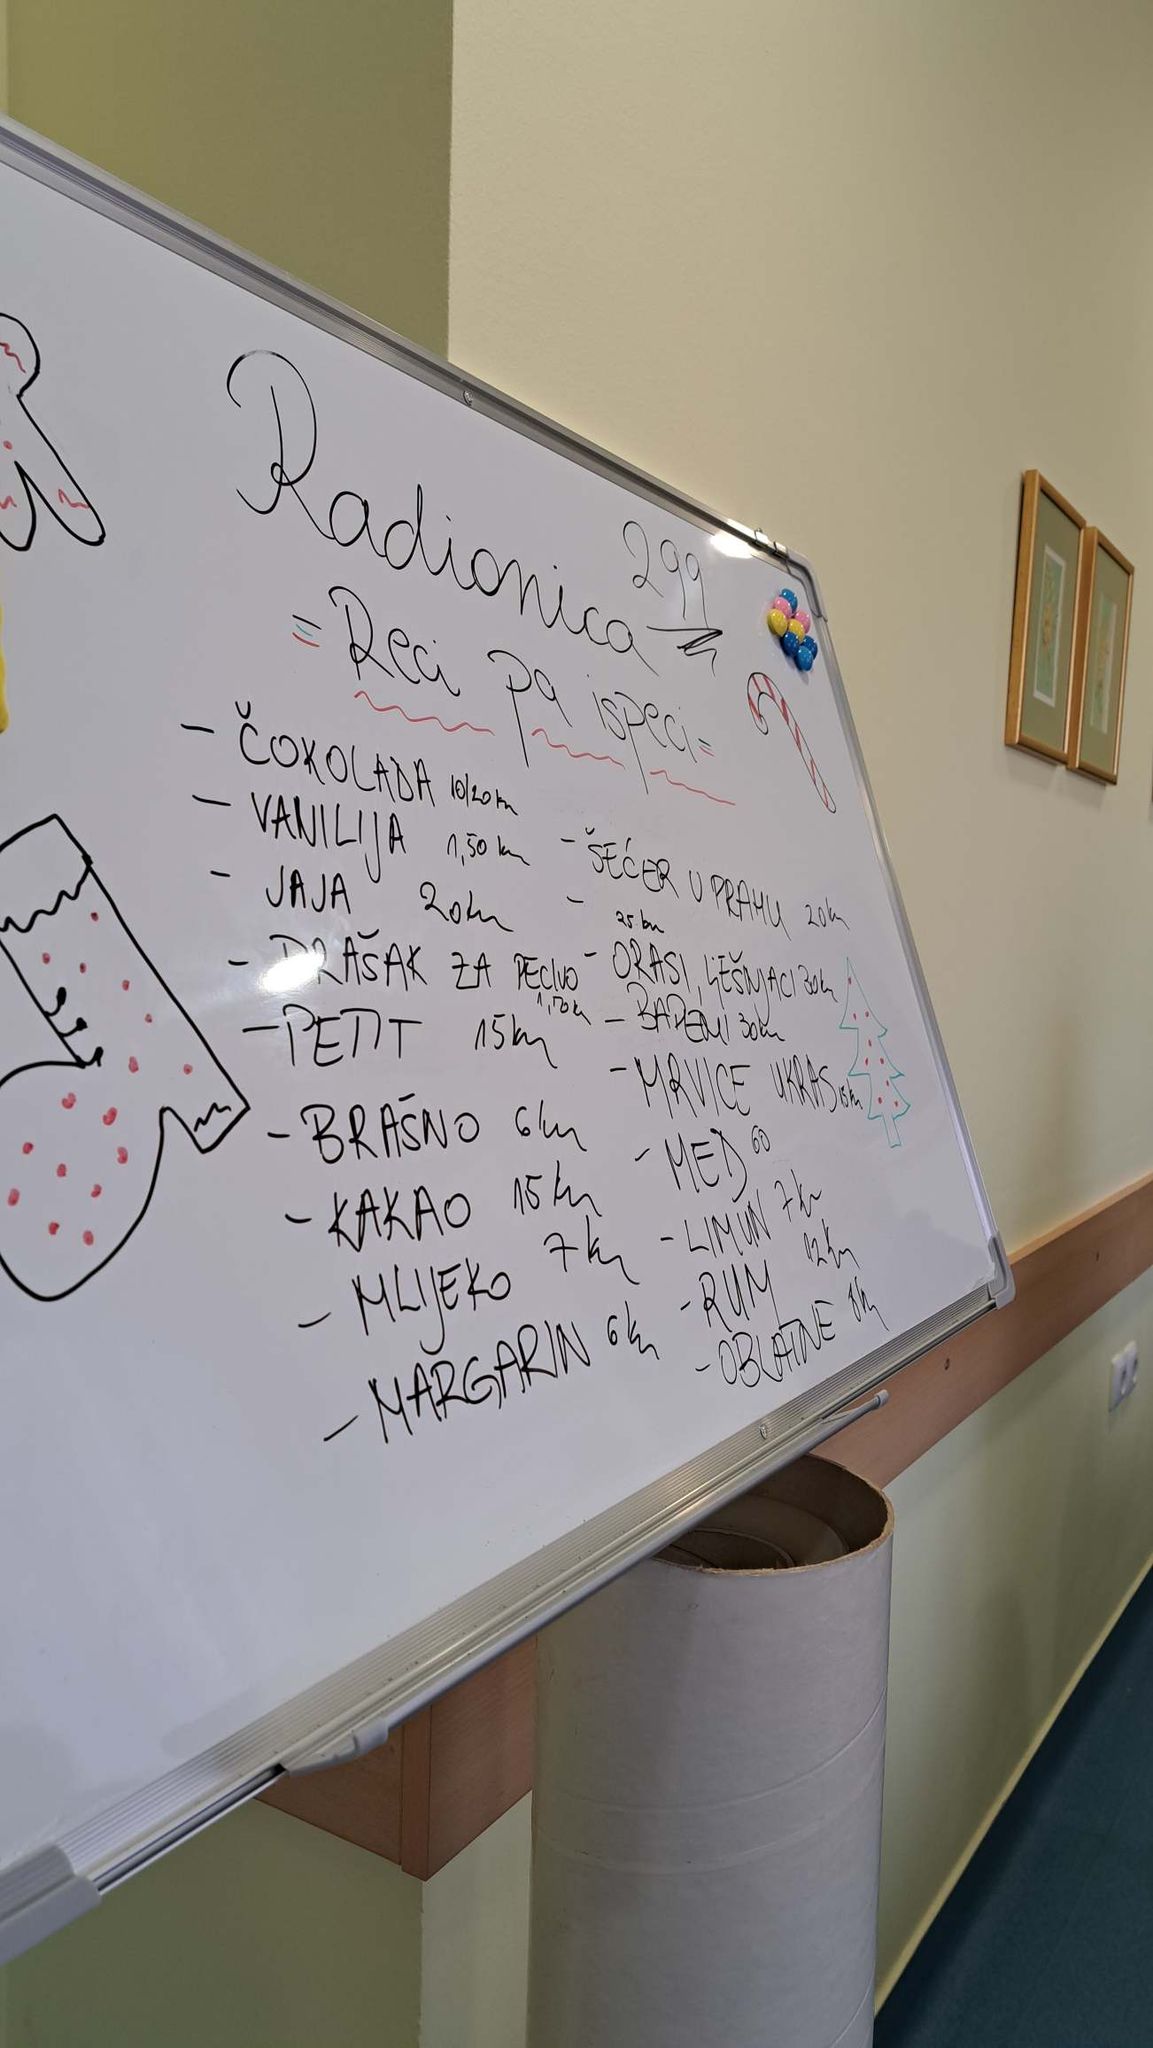 Radionica 299
= Reci pa ispeci =
- ČOKOLADA 10/20 kn
- VANILIJA 1,50 kn
- JAJA 20 kn
- PRAŠAK ZA PECIVO 1,50 kn
- PETIT 15 kn
- BRAŠNO 6 kn
- KAKAO 15 kn
- MLIJEKO 7 kn
- MARGARIN 6 kn
- ŠEĆER U PRAHU 20 kn
- 25 kn
- ORASI, LJEŠNJACI 30 kn
- BADEMI 30 kn
- MRVICE UKRAS 15 kn
- MED 60
- LIMUN 7 kn
- RUM 12 kn
- OBLATNE 8 kn